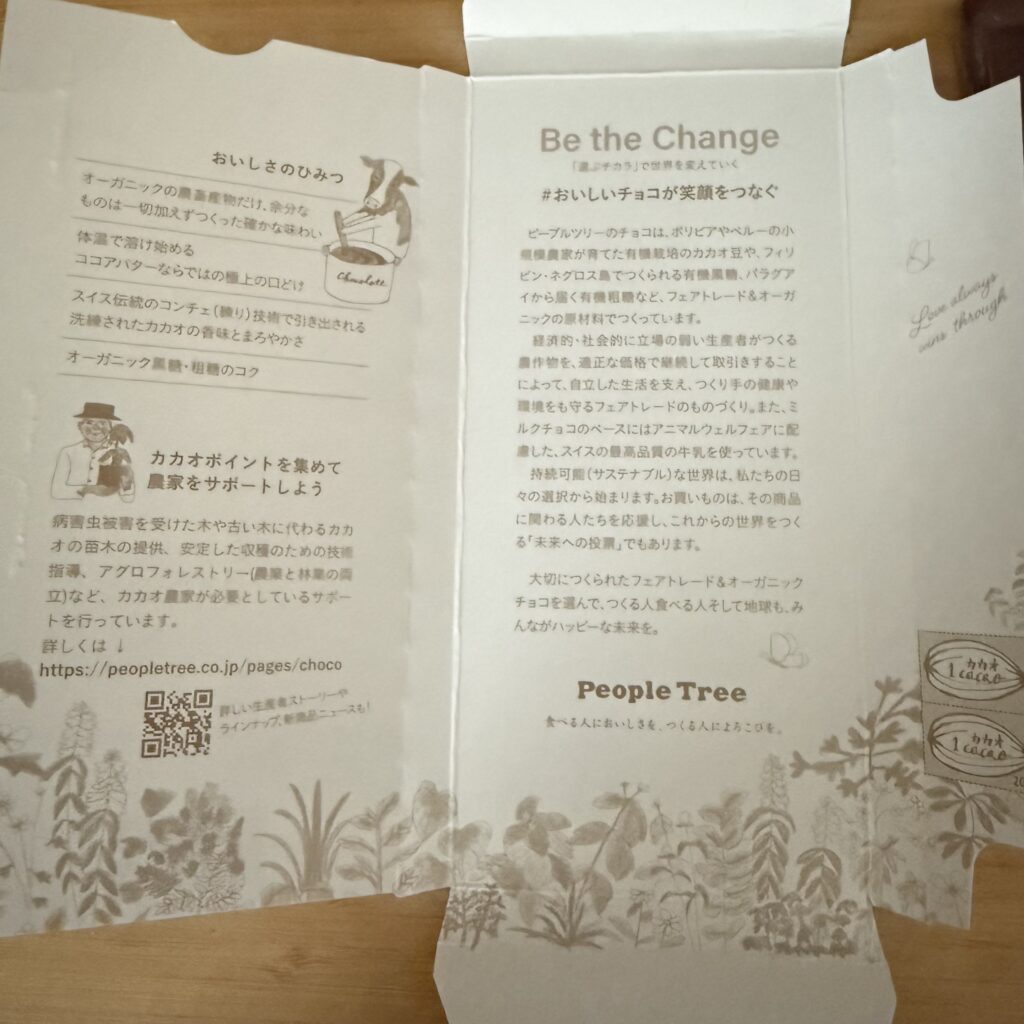 おいしさのひみつ
オーガニックの農畜産物だけ、余分な
ものは一切加えずつくった確かな味わい
体温で溶け始める
ココアバターならではの極上の口どけ
スイス伝統のコンチェ(練り)技術で引き出される
洗練されたカカオの香味とまろやかさ
オーガニック黒糖・粗糖のコク
Chocolate
カカオポイントを集めて
農家をサポートしよう
病害虫被害を受けた木や古い木に代わるカカ
オの苗木の提供、安定した収穫のための技術
指導、アグロフォレストリー(農業と林業の両
立)など、カカオ農家が必要としているサポー
トを行っています。
詳しくは↓
https://peopletree.co.jp/pages/choco
詳しい生産者ストーリーや
ラインナップ、新商品ニュースも!
Be the Change
「選ぶチカラ」で世界を変えていく
#おいしいチョコが笑顔をつなぐ
ピープルツリーのチョコは、ボリビアやペルーの小
規模農家が育てた有機栽培のカカオ豆や、フィリ
ピン・ネグロス島でつくられる有機黒糖、パラグア
イから届く有機粗糖など、フェアトレード&オーガ
ニックの原材料でつくっています。
経済的・社会的に立場の弱い生産者がつくる
農作物を、適正な価格で継続して取引きすること
によって、自立した生活を支え、つくり手の健康や
環境をも守るフェアトレードのものづくり。また、ミ
ルクチョコのベースにはアニマルウェルフェアに配
慮した、スイスの最高品質の牛乳を使っています。
持続可能(サステナブル)な世界は、私たちの日
々の選択から始まります。お買いものは、その商品
に関わる人たちを応援し、これからの世界をつく
る「未来への投票」でもあります。
大切につくられたフェアトレード&オーガニック
チョコを選んで、つくる人食べる人そして地球も、み
んながハッピーな未来を。
People Tree
食べる人においしさを、つくる人によろこびを。
Love always
wins through
カカオ
1 cacao
カカオ
1 cacao
20